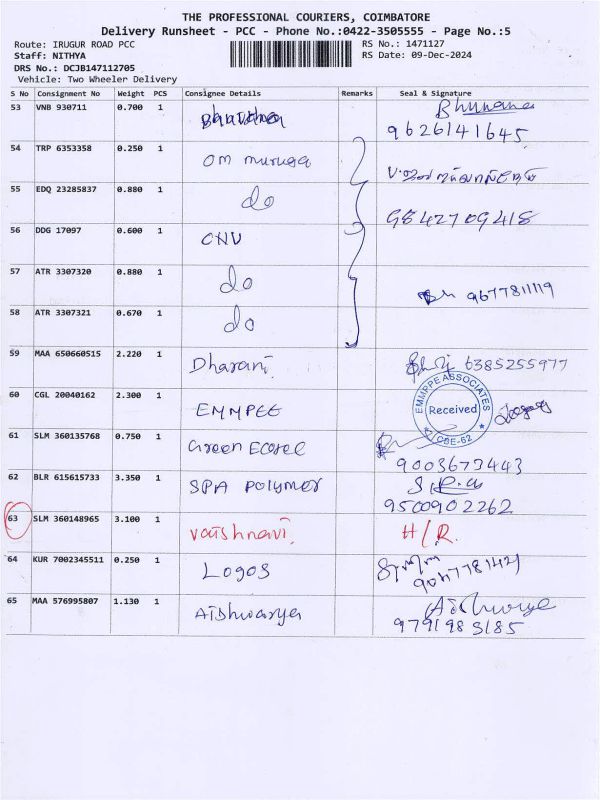 THE PROFESSIONAL COURIERS, COIMBATORE
Delivery Runsheet - PCC - Phone No.:0422-3505555 - Page No.:5
Route: IRUGUR ROAD PCC RS No.: 1471127
Staff: NITHYA RS Date: 09-Dec-2024
DRS No.: DCJB147112705
Vehicle: Two Wheeler Delivery
S No Consignment No Weight PCS Consignee Details Remarks Seal & Signature
53 VNB 930711 0.700 1 Bhuvana
9626141645
54 TRP 6353358 0.250 1 Om muruga
55 EDQ 23285837 0.880 1 do
9842709418
56 DDG 17097 0.600 1 CNV
57 ATR 3307320 0.880 1 do 9677811119
58 ATR 3307321 0.670 1 do
59 MAA 650660515 2.220 1 Dharani 6385255977
60 CGL 20040162 2.300 1 EMMPEE EMMPPE ASSOCIATES Received CBE-62
61 SLM 360135768 0.750 1 Green Ecosel
9003673443
62 BLR 615615733 3.350 1 SPA Polymer
9500902262
63 SLM 360148965 3.100 1 Vaishnavi H/R.
64 KUR 7002345511 0.250 1 Logos
65 MAA 576995807 1.130 1 Aishwarya Aishwarya
9791983185